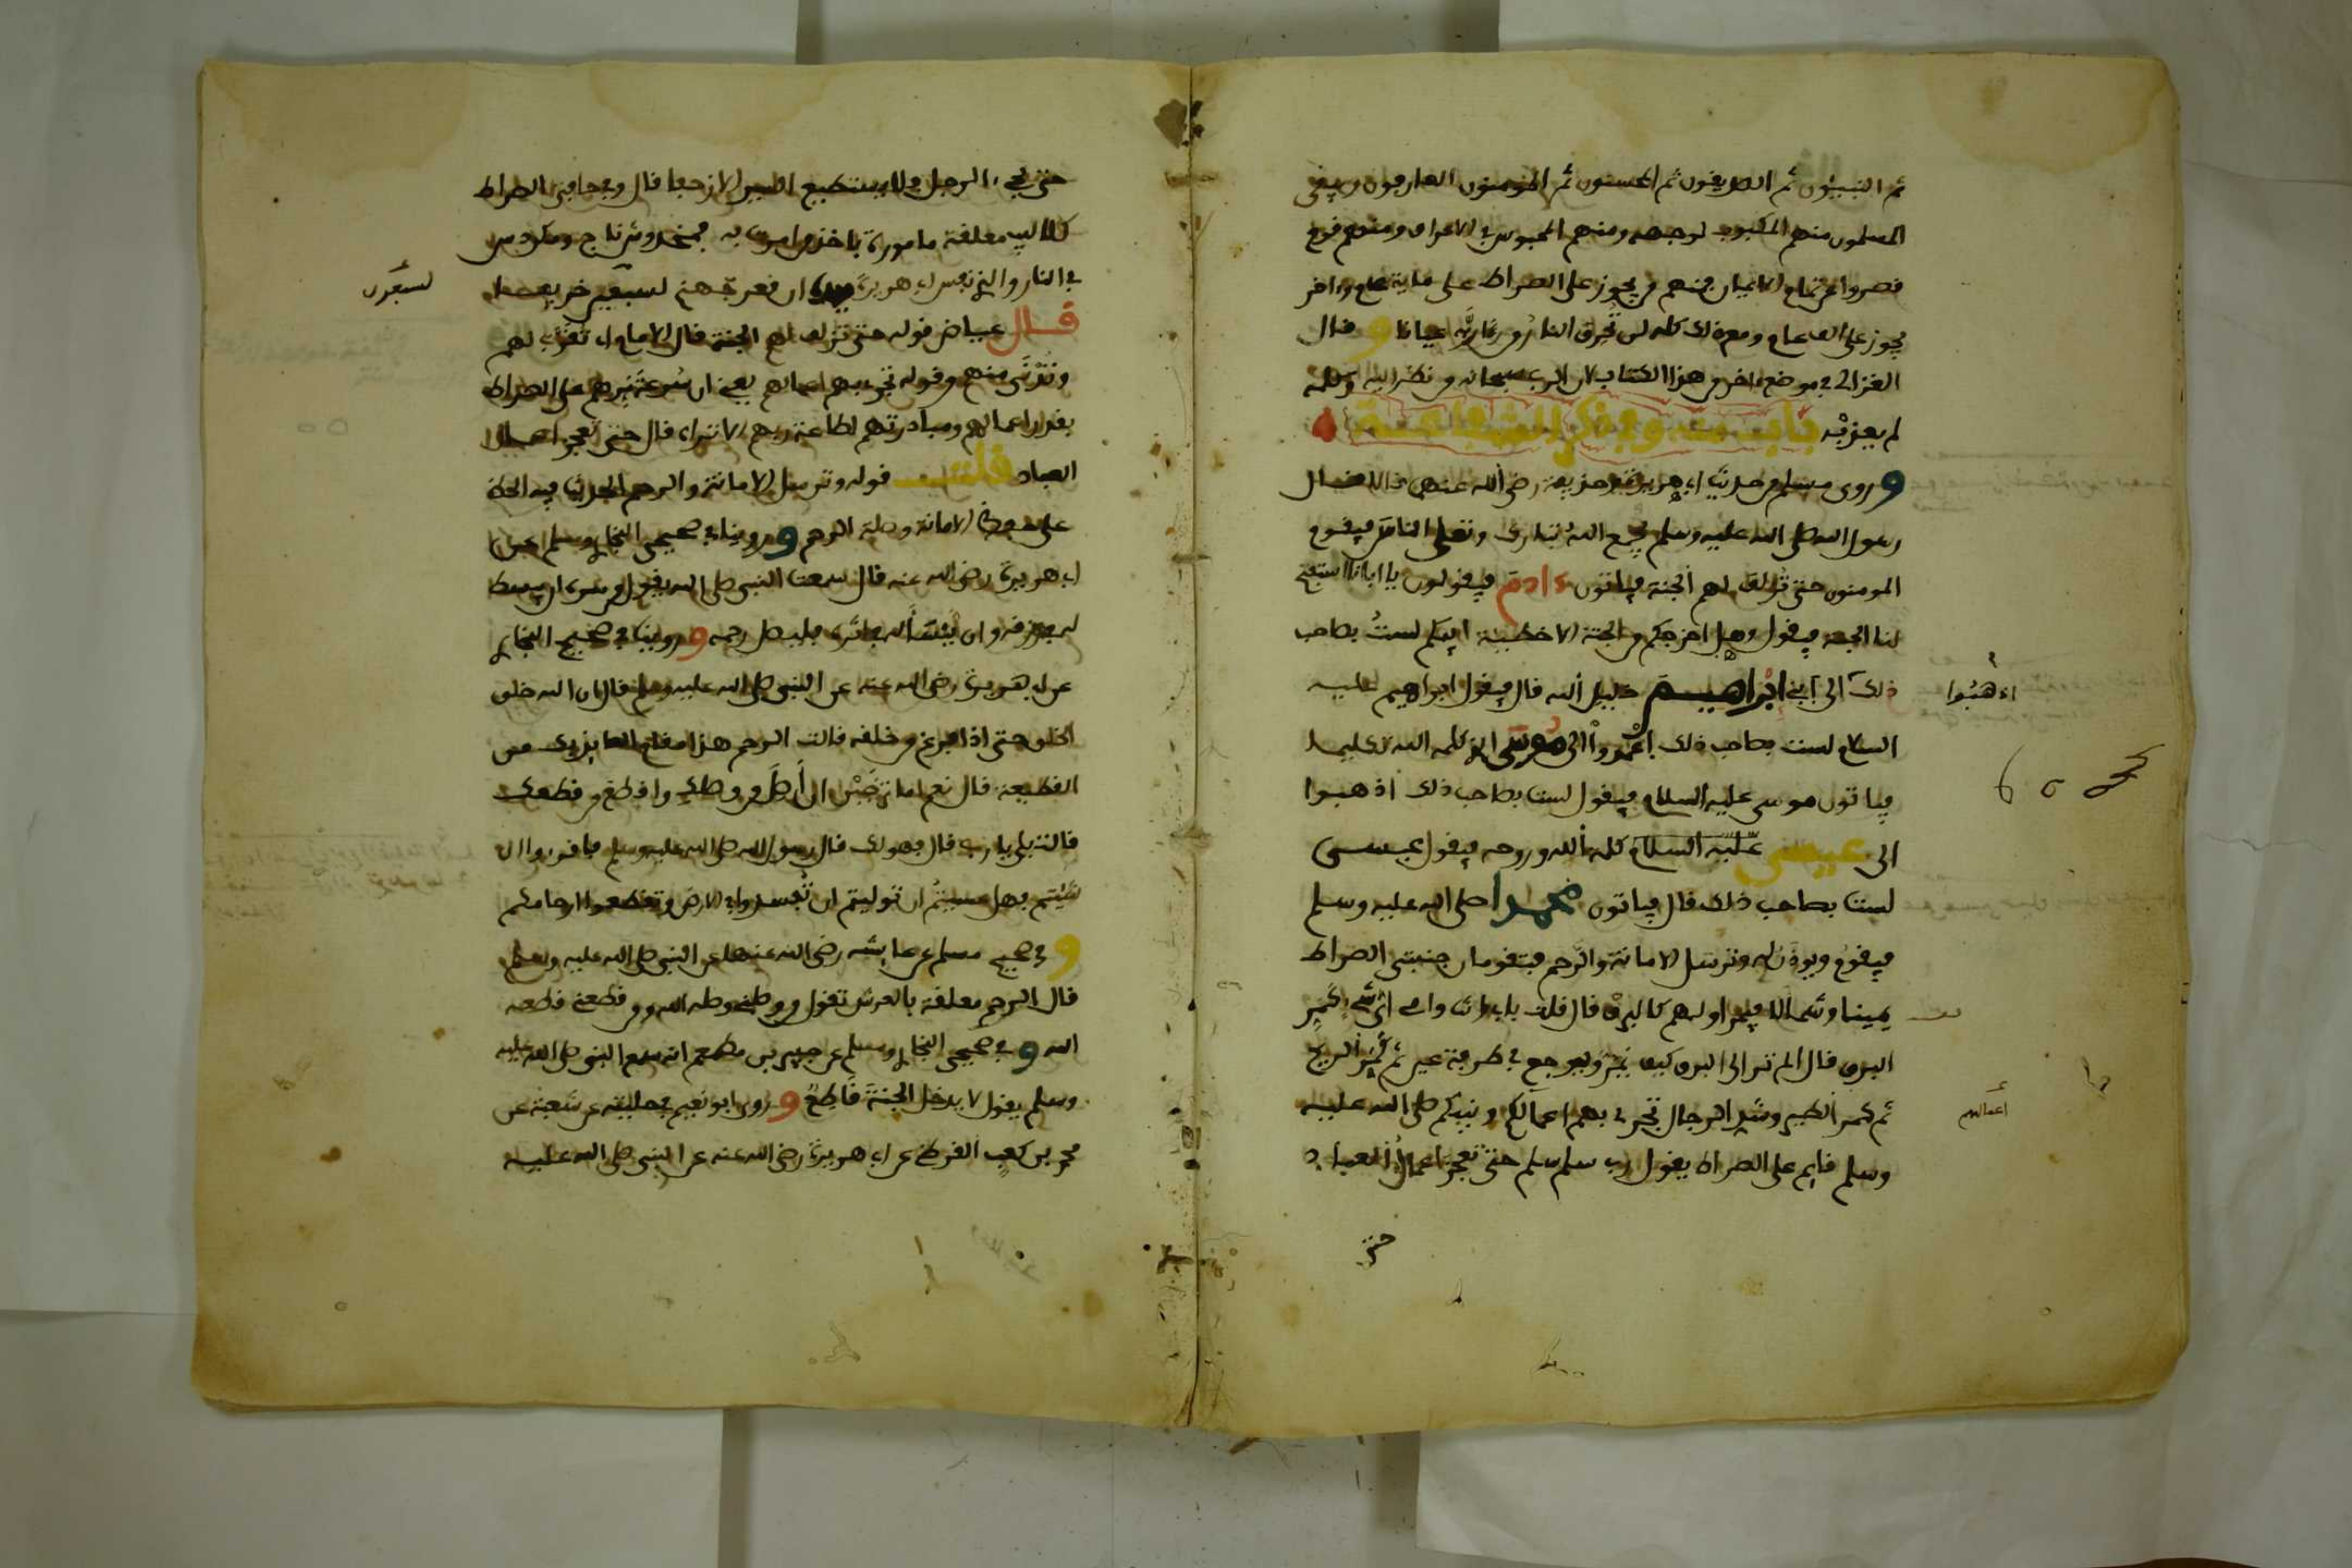 ثم النبيئون ثم الصديقون ثم المحسنون ثم المومنون العارفون ويبقى
المسلمون منهم المكبوب لوجهه ومنهم المحبوس في الاعراف ومنهم قوم
قصروا عن تمام الايمان فمنهم من يجوز على الصراط على ماية عام وءاخر
يجوز على الف عام ومع ذلك كله لن تحرق النار من رءا ربه عيانا وقال
الغزالي في موضع ءاخر من هذا الكتاب لان الرب سبحانه من نظر اليه وكلمه
لم يعذبه باب منه وفي ذكر الشفاعة
وروى مسلم من حديث ابي هريرة وحذيفة رضي الله عنهما قالا قال
رسول الله صلى الله عليه وسلم يجمع الله تبارك وتعلى الناس فيقوم
المومنون حتى تزلف لهم الجنة فياتون ءادم فيقولون يا ابانا استفتح
لنا الجنة فيقول وهل اخرجكم من الجنة الا خطيئة ابيكم لست بصاحب
ذلك الى ابني ابراهيم خليل الله قال فيقول ابراهيم عليه
اذهبوا
السلام لست بصاحب ذلك اعمدوا الى موسى الذي كلمه الله تكليما
فياتون موسى عليه السلام فيقول لست بصاحب ذلك اذهبوا
الى عيسى عليه السلام كلمة الله وروحه فيقول عيسى
لست بصاحب ذلك قال فياتون محمدا صلى الله عليه وسلم
فيقوم ويوذن له وترسل الامانة والرحم فتقومان جنبتي الصراط
يمينا وشمالا فيمر اولهم كالبرق قال قلت بابي انت وامي اي شيء كمر
البرق قال الم تر الى البرق كيف يمر ويرجع في طرفة عين ثم كمر الريح
ثم كمر الطير وشد الرجال تجري بهم اعمالكم ونبيكم صلى الله عليه
أعمالهم
وسلم قايم على الصراط يقول رب سلم سلم حتى تعجز اعمال العباد
حتى
حتى يجيء الرجل فلا يستطيع السير الا زحفا قال وفي حافتي الصراط
كلاليب معلقة مامورة باخذ من امرت به فمخدوش ناج ومكردس
في النار والذي نفس ابي هريرة بيده ان قعر جهنم لسبعين خريفا
لسبعون
قال عياض قوله حتى تزلف لهم الجنة قال الامام اي تقرب لهم
وتدنى منهم وقوله تجري بهم اعمالهم يعني ان سرعة مرهم على الصراط
بقدر اعمالهم ومبادرتهم لطاعة ربهم الا تراه قال حتى تعجز اعمال
العباد قلت قوله وترسل الامانة والرحم الحديث فيه الحض
على الامانة وصلة الرحم وروينا في صحيحي البخاري ومسلم عن
ابي هريرة رضي الله عنه قال سمعت النبي صلى الله يقول من سره ان يبسط
له في رزقه وان ينسأ له في اثره فليصل رحمه وروينا في صحيح البخاري
عن ابي هريرة رضي الله عنه عن النبي صلى الله عليه وسلم قال ان الله خلق
الخلق حتى اذا فرغ من خلقه قالت الرحم هذا مقام العايذ بك من
القطيعة قال نعم اما ترضين ان أصل من وصلك واقطع من قطعك
قالت بلى يا رب قال فهو لك قال رسول الله صلى الله عليه وسلم فاقرءوا ان
شئتم فهل عسيتم ان توليتم ان تفسدوا في الارض وتقطعوا ارحامكم
وفي صحيح مسلم عن عايشة رضي الله عنها عن النبي صلى الله عليه وسلم
قال الرحم معلقة بالعرش تقول من وصلني وصله الله ومن قطعني قطعه
الله وفي صحيحي البخاري ومسلم عن جبير بن مطعم انه سمع النبي صلى الله عليه
وسلم يقول لا يدخل الجنة قاطع وروى ابو نعيم في حليته عن شعبة عن
محمد بن كعب القرظي عن ابي هريرة رضي الله عنه عن النبي صلى الله عليه